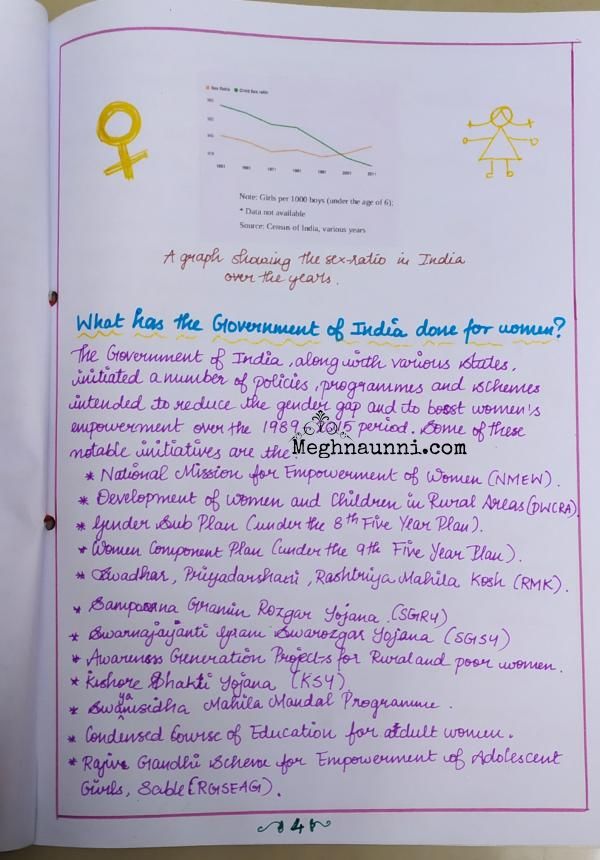 Sex Ratio Child Sex ratio
1961 1971 1981 1991 2001 2011
Note: Girls per 1000 boys (under the age of 6);
* Data not available
Source: Census of India, various years
A graph showing the sex-ratio in India
over the years.
What has the Government of India done for women?
The Government of India, along with various states,
initiated a number of policies, programmes and schemes
intended to reduce the gender gap and to boost women's
empowerment over the 1989 2015 period. Some of these
notable initiatives are the
Meghnaunni.com
* National Mission for Empowerment of Women (NMEW).
* Development of Women and Children in Rural Areas (DWCRA)
* Gender Sub Plan (under the 8th Five Year Plan).
* Women Component Plan (under the 9th Five Year Plan).
* Swadhar, Priyadarshani, Rashtriya Mahila Kosh (RMK).
* Sampoorna Gramin Rozgar Yojana (SGRY)
* Swarnajayanti Gram Swarozgar Yojana (SGSY)
* Awareness Generation Projects for Rural and poor women.
* Kishore Shakti Yojana (KSY)
* Swayamsidha Mahila Mandal Programme.
* Condensed Course of Education for adult women.
* Rajiv Gandhi Scheme for Empowerment of Adolescent
Girls, Sable (RGSEAG).
4